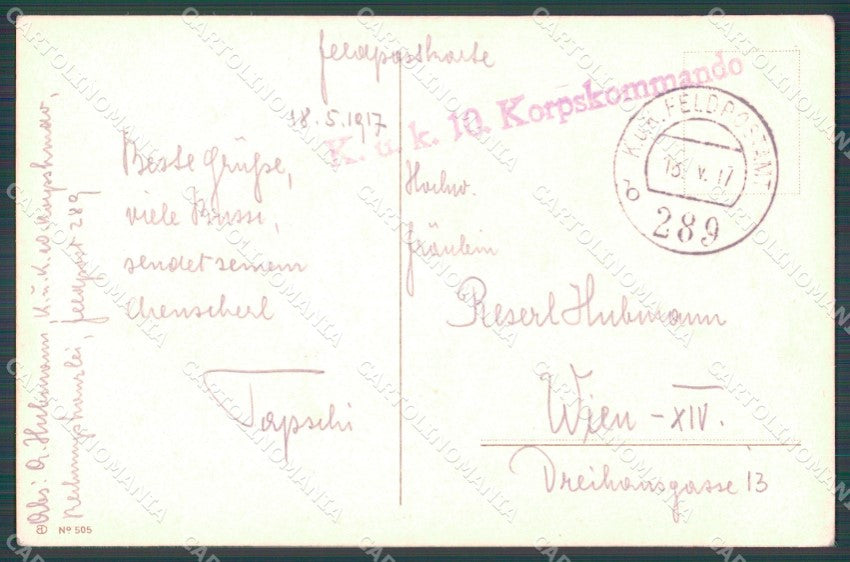 Feldpostkarte
18.5.1917
K. u. k. 10. Korpskommando
K.u.K. FELDPOSTAMT
V. 17
b
289
Beste Grüße,
viele Bussi,
sendet seinem
Tapschi
Hochw.
Fräulein
Reserl Hubmann
Wien - XIV.
Dreihausgasse 13
Abs: A. Hubmann, K. u. K. Korpskmdo,
Rechnungskanzlei, Feldpost 289
Nº 505
CARTOLINOMANIA